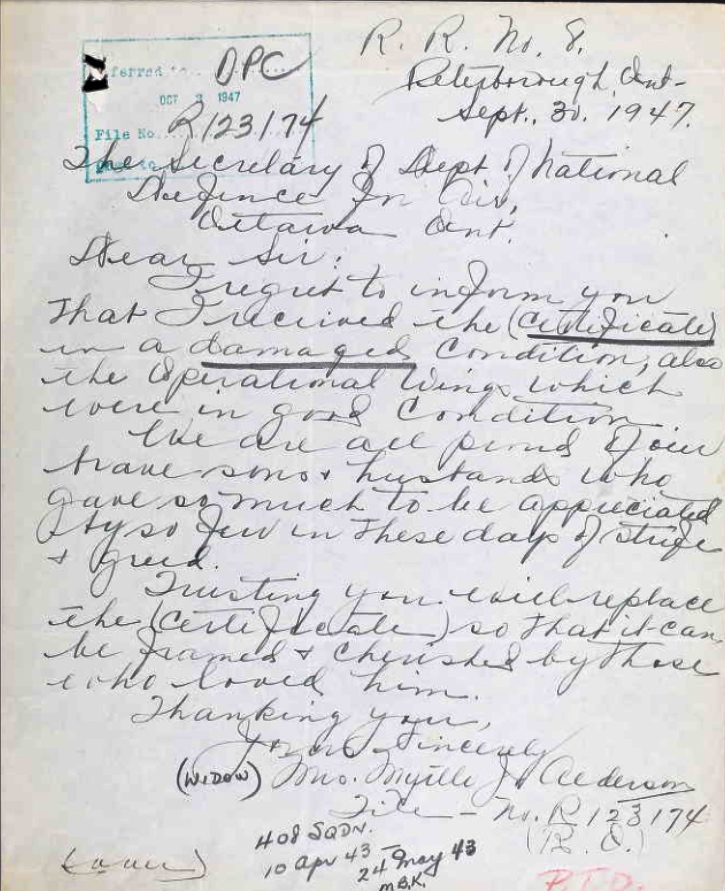 R. R. No. 8.
Peterborough, Ont-
Sept., 30. 1947.
ferred to.. DPC
OCT 3 1947
File No. R123174
The Secretary of Dept. of National
Defence for Air,
Ottawa Ont.
Dear Sir:
I regret to inform you
that I received the (certificate)
in a damaged condition, also
the Operational Wings which
were in good Condition.
We are all proud of our
brave sons & husbands who
gave so much to be appreciated
by so few in these days of strife
& greed.
Trusting you will replace
the (Certificate) so that it can
be framed & cherished by those
who loved him.
Thanking you,
Yours Sincerely
(WIDOW) Mrs. Myrtle J. Alderson
File - No. R123174
(R. O.)
408 SQDN.
10 Apr 43 - 24 May 43
M.B.K.
P.T.O.